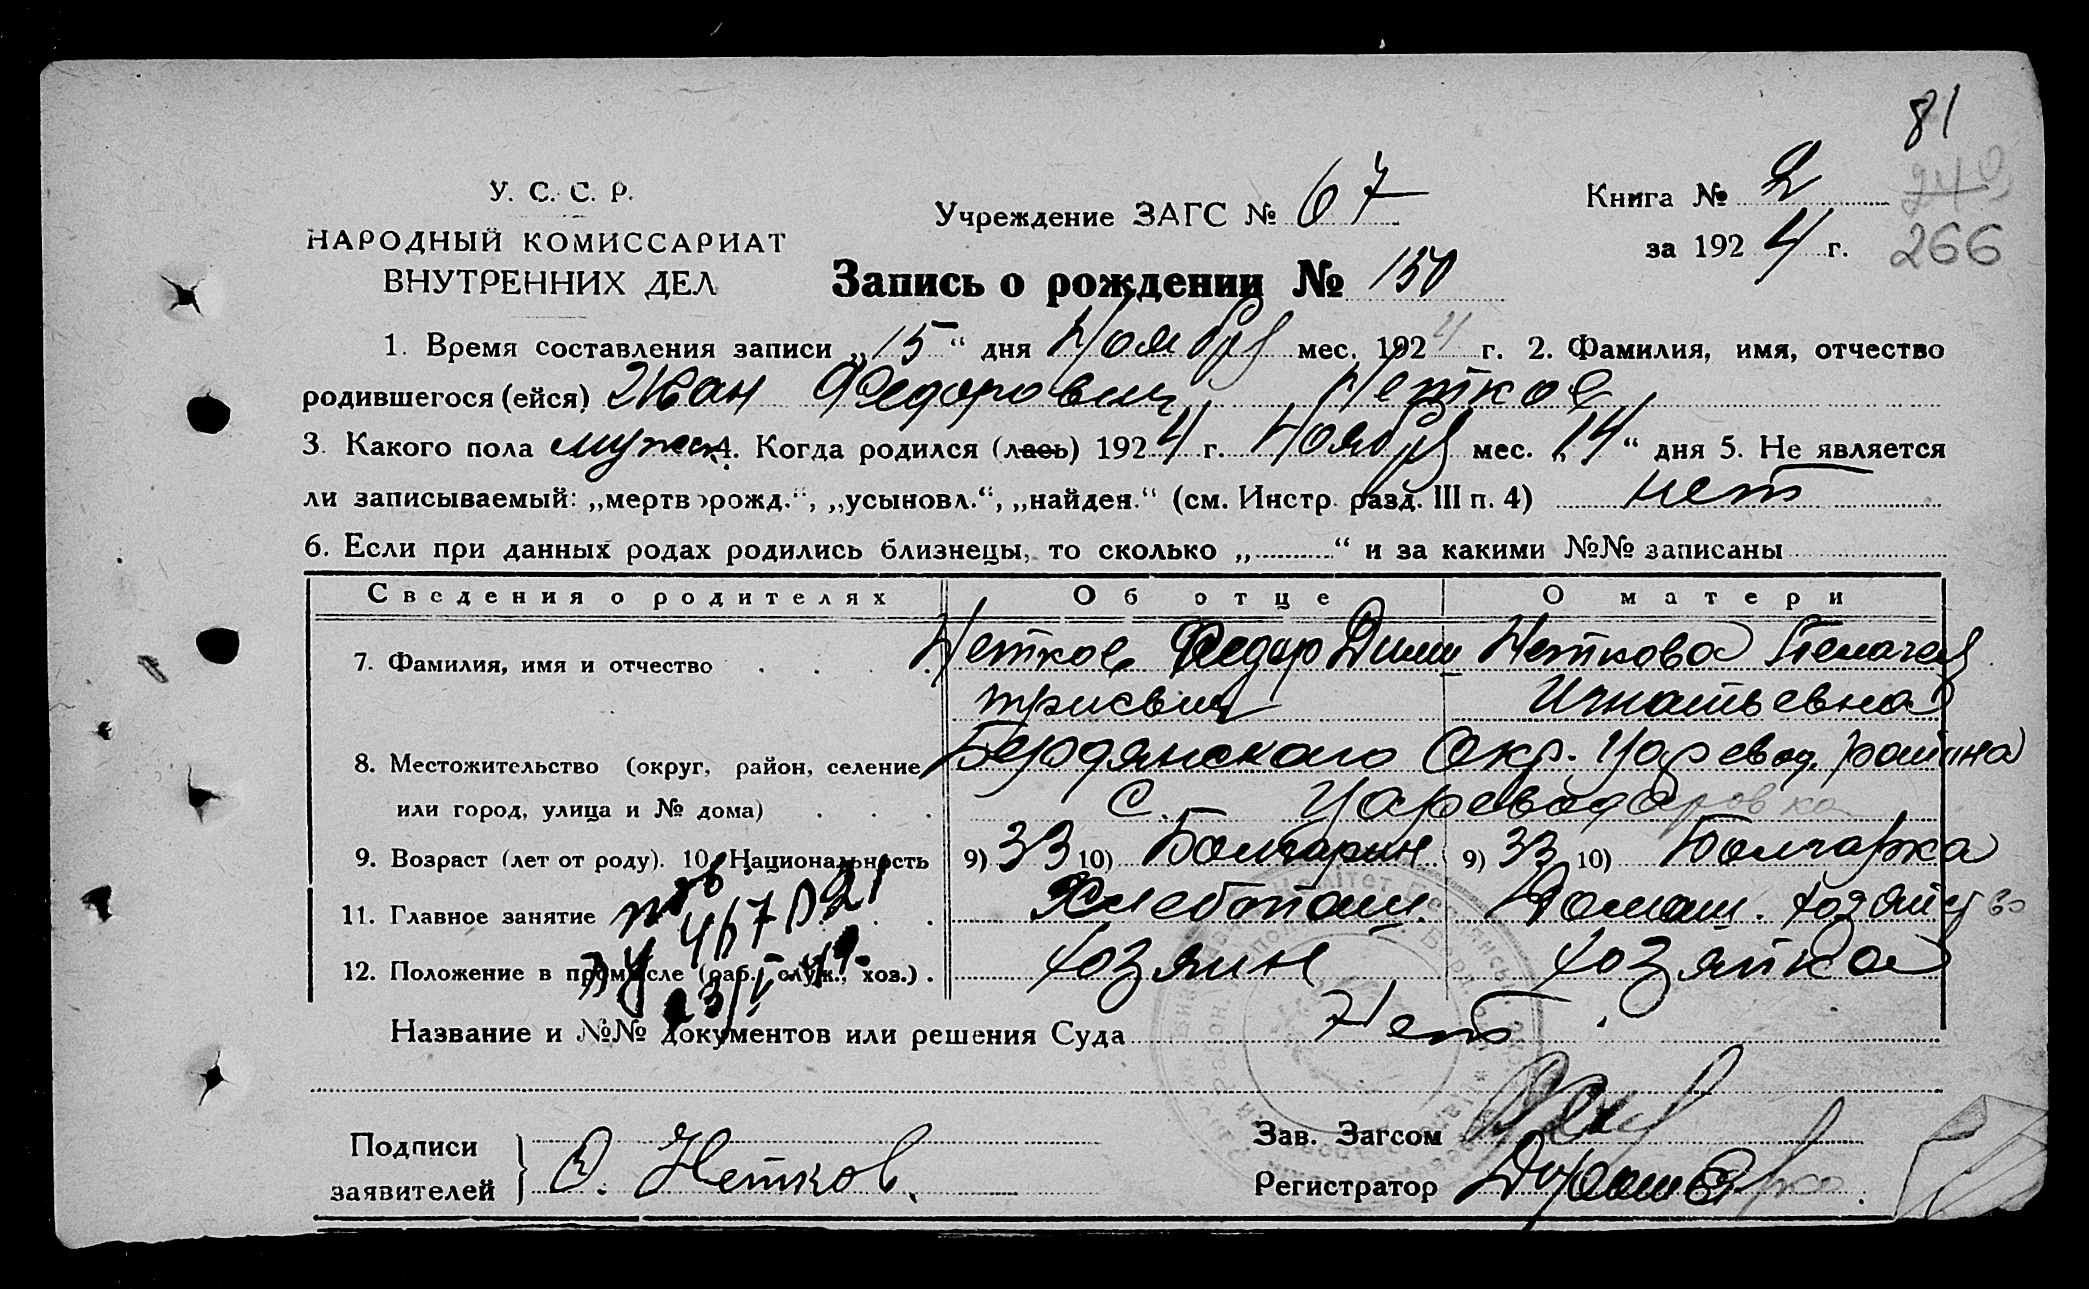 81
У. С. С. Р.
НАРОДНЫЙ КОМИССАРИАТ
ВНУТРЕННИХ ДЕЛ
Учреждение ЗАГС № 67
Книга № 2
249
за 1924 г.
266
Запись о рождении № 150
1. Время составления записи „15“ дня Ноября мес. 1924 г. 2. Фамилия, имя, отчество
родившегося (ейся) Иван Федорович Нетков
3. Какого пола мужск. 4. Когда родился (лась) 1924 г. Ноября мес. „14“ дня 5. Не является
ли записываемый: „мертворожд.“, „усыновл.“, „найден.“ (см. Инстр. разд. III п. 4) нет
6. Если при данных родах родились близнецы, то сколько „..........“ и за какими №№ записаны
Сведения о родителях Об отце О матери
7. Фамилия, имя и отчество . . . Нетков Федор Дими Неткова Пелагея
триевич Игнатьевна
8. Местожительство (округ, район, селение Бердянского Окр. Царевод. района
или город, улица и № дома) . . . с. Цареводаровка
9. Возраст (лет от роду). 10. Национальность 9) 33 10) Болгарин 9) 33 10) Болгарка
11. Главное занятие . . Хлебопаш. Домаш. хозяйство
12. Положение в промысле (раб., служ., хоз.) . хозяин хозяйка
Название и №№ документов или решения Суда Нет
Подписи
заявителей Ф. Нетков.
Зав. Загсом
Регистратор